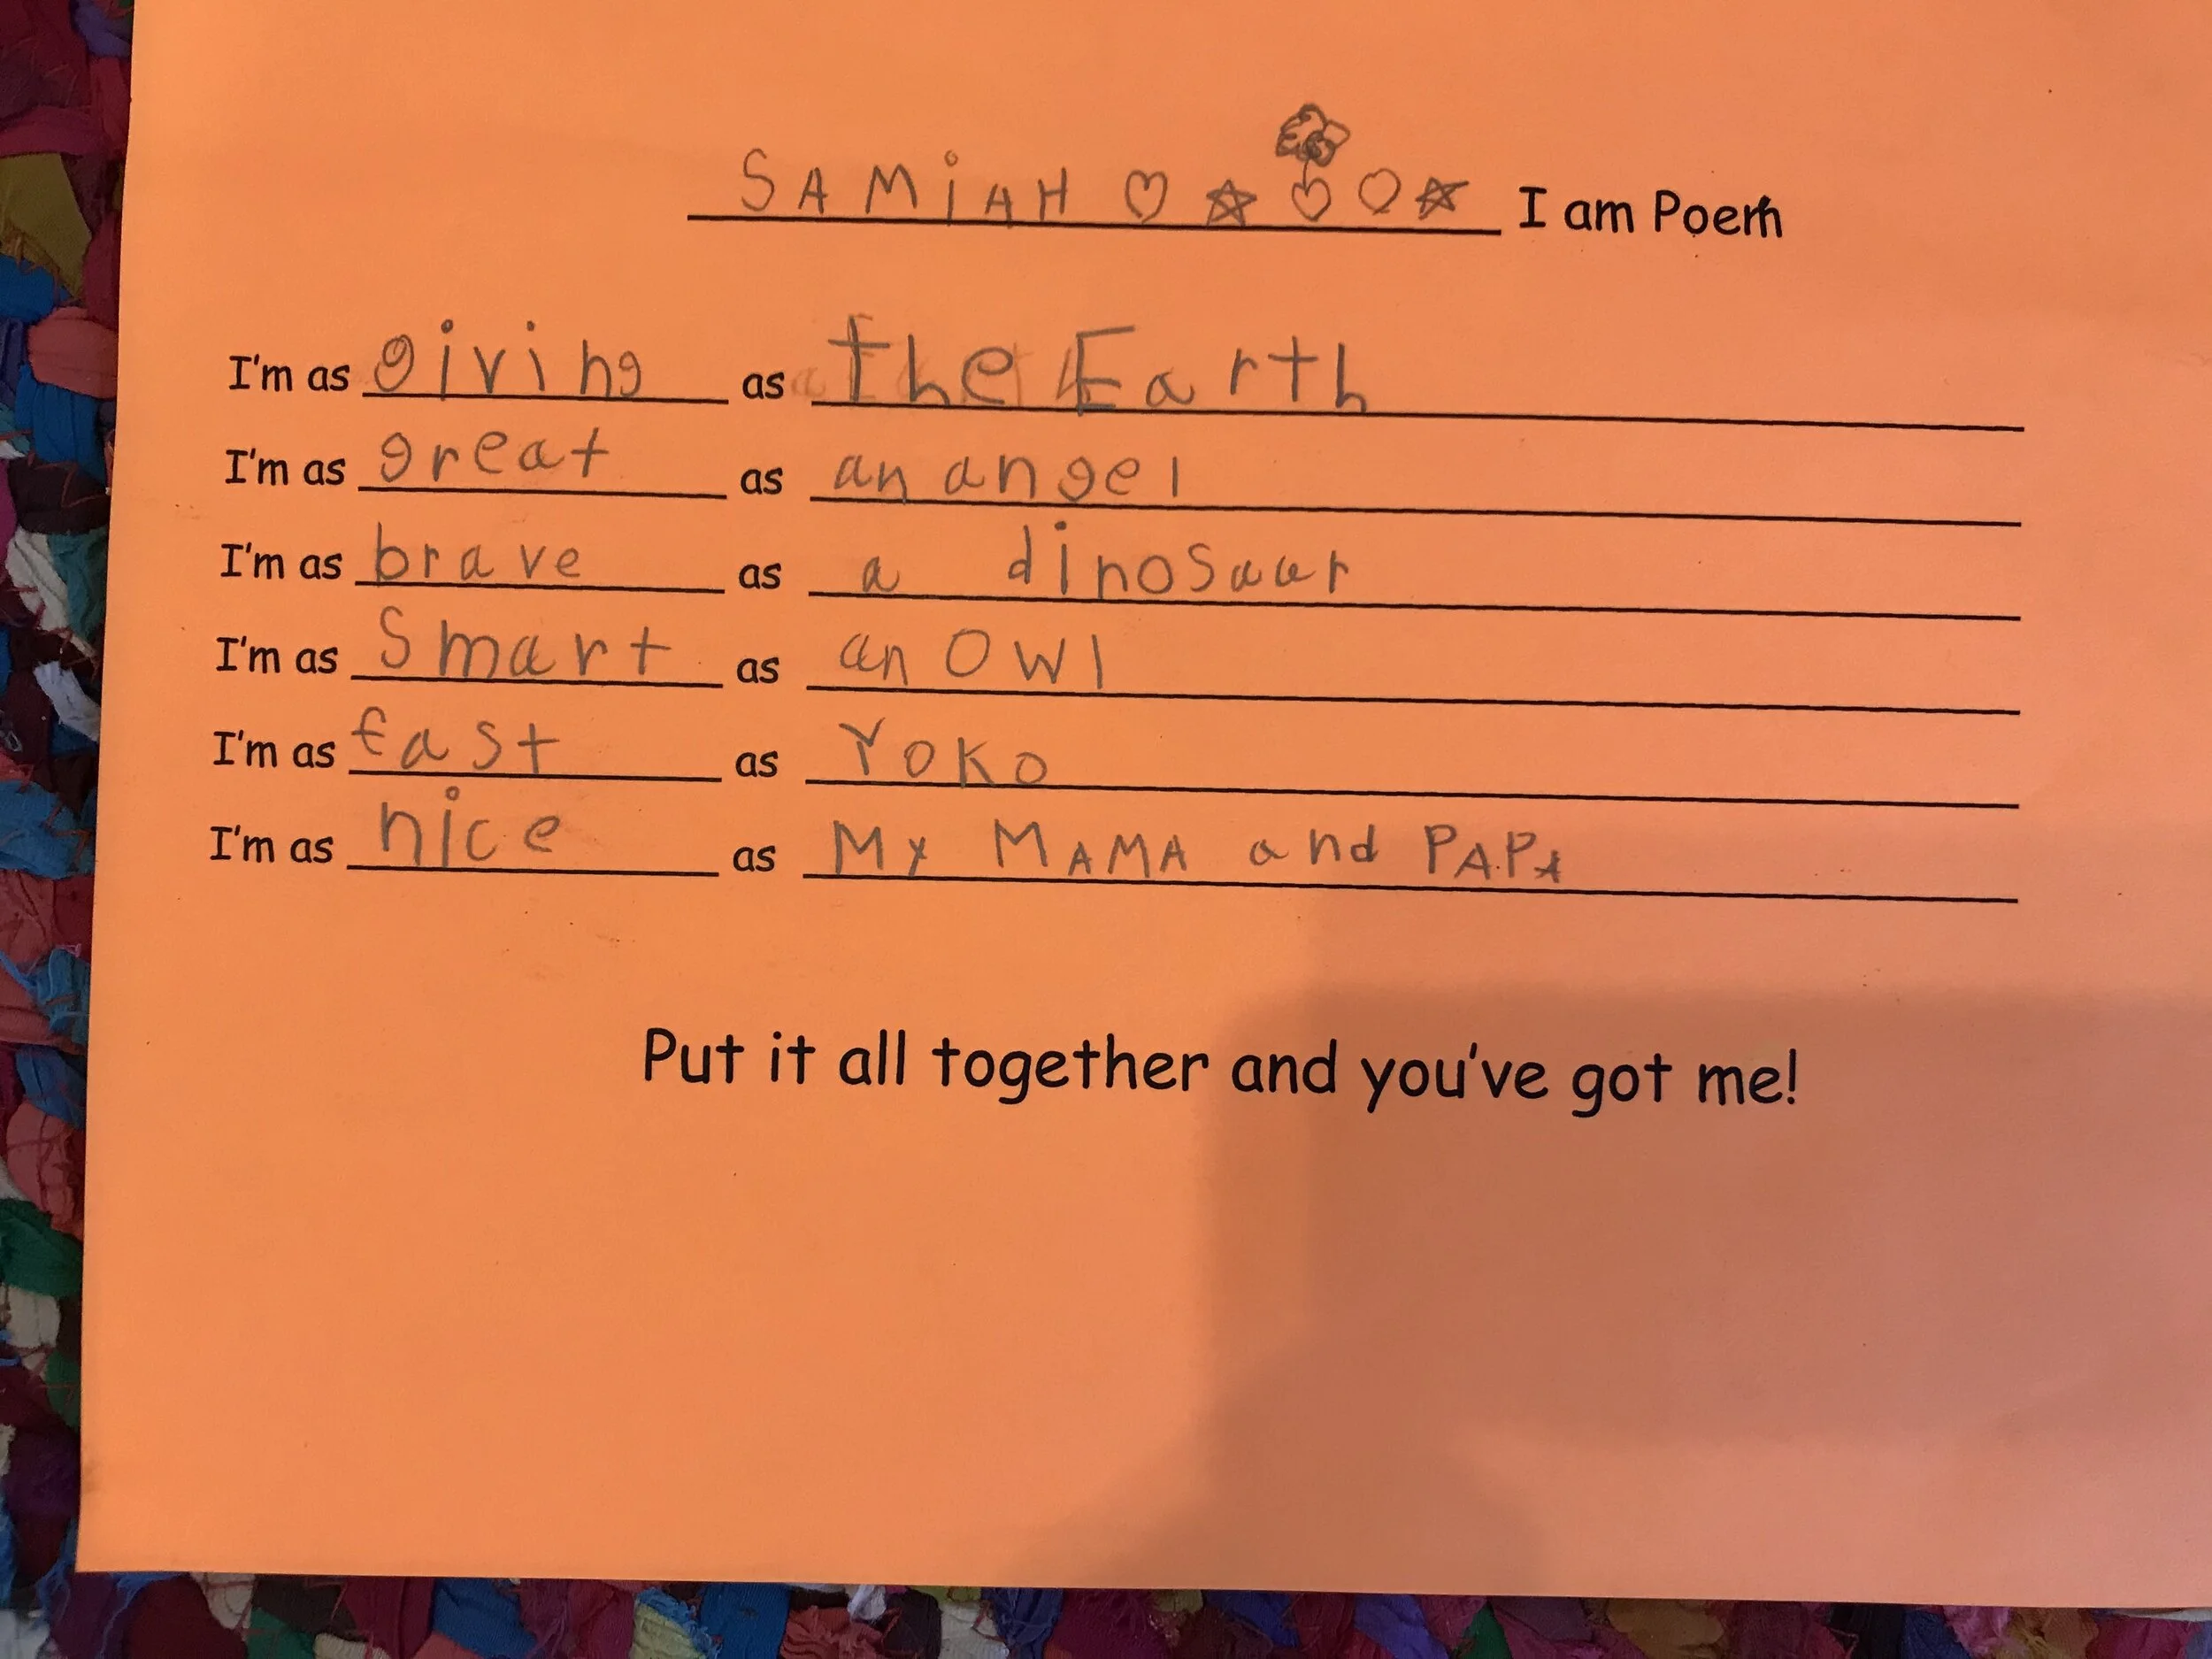 SAMiAH ♡ ☆ ♡ ♡ ☆ I am Poem
I'm as giving as the Earth
I'm as great as an angel
I'm as brave as a dinosaur
I'm as Smart as an owl
I'm as fast as Yoko
I'm as nice as My MAMA and PAPA
Put it all together and you've got me!